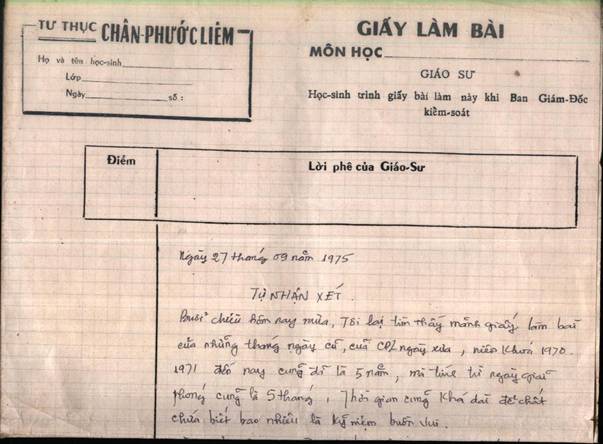 TƯ THỤC CHÂN-PHƯỚC LIÊM
Họ và tên học-sinh
Lớp
Ngày số :
GIẤY LÀM BÀI
MÔN HỌC
GIÁO SƯ
Học-sinh trình giấy bài làm này khi Ban Giám-Đốc
kiểm-soát
Điểm
Lời phê của Giáo-Sư
Ngày 27 tháng 09 năm 1975
TỰ NHẬN XÉT.
Buổi chiều hôm nay mưa, Tôi lại tìm thấy mảnh giấy làm bài
của những tháng ngày cũ, của CPL ngày xưa, niên khoá 1970
1971 đến nay cũng đã là 5 năm, mà tính từ ngày giải
phóng cũng là 5 tháng, Thời gian cũng khá dài để chất
chứa biết bao nhiêu là kỷ niệm buồn vui.